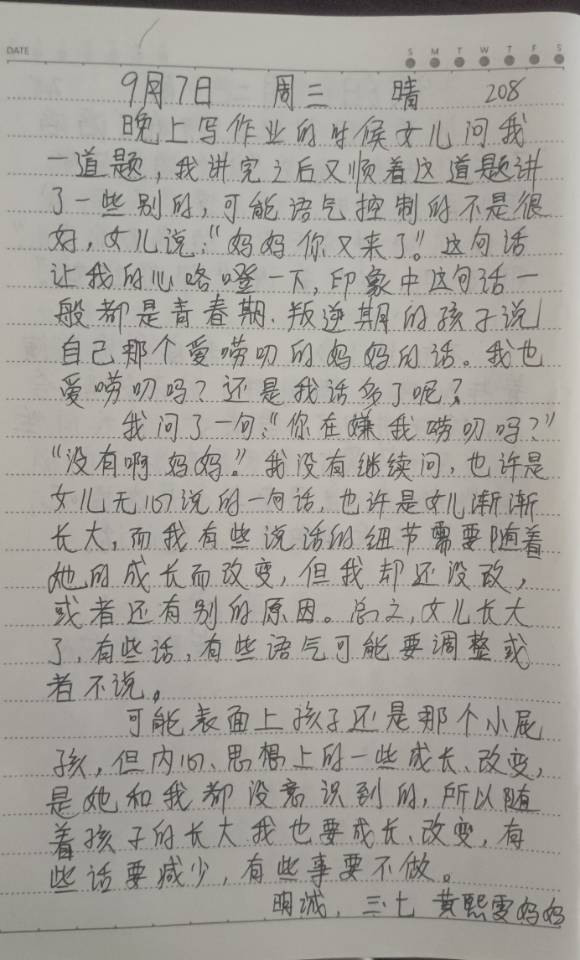 DATE
S M T W T F S
9月7日 周三 晴 208
晚上写作业的时候女儿问我
一道题，我讲完之后又顺着这道题讲
了一些别的，可能语气控制的不是很
好，女儿说：“妈妈你又来了。”这句话
让我的心咯噔一下，印象中这句话一
般都是青春期、叛逆期的孩子说
自己那个爱唠叨的妈妈的话。我也
爱唠叨吗？还是我话多了呢？
我问了一句：“你在嫌我唠叨吗？”
“没有啊妈妈。”我没有继续问，也许是
女儿无心说的一句话，也许是女儿渐渐
长大，而我有些说话的细节需要随着
她的成长而改变，但我却还没改，
或者还有别的原因。总之，女儿长大
了，有些话，有些语气可能要调整或
者不说。
可能表面上孩子还是那个小屁
孩，但内心、思想上的一些成长、改变，
是她和我都没意识到的，所以随
着孩子的长大我也要成长、改变，有
些话要减少，有些事要不做。
明诚、三·七 黄熙雯妈妈